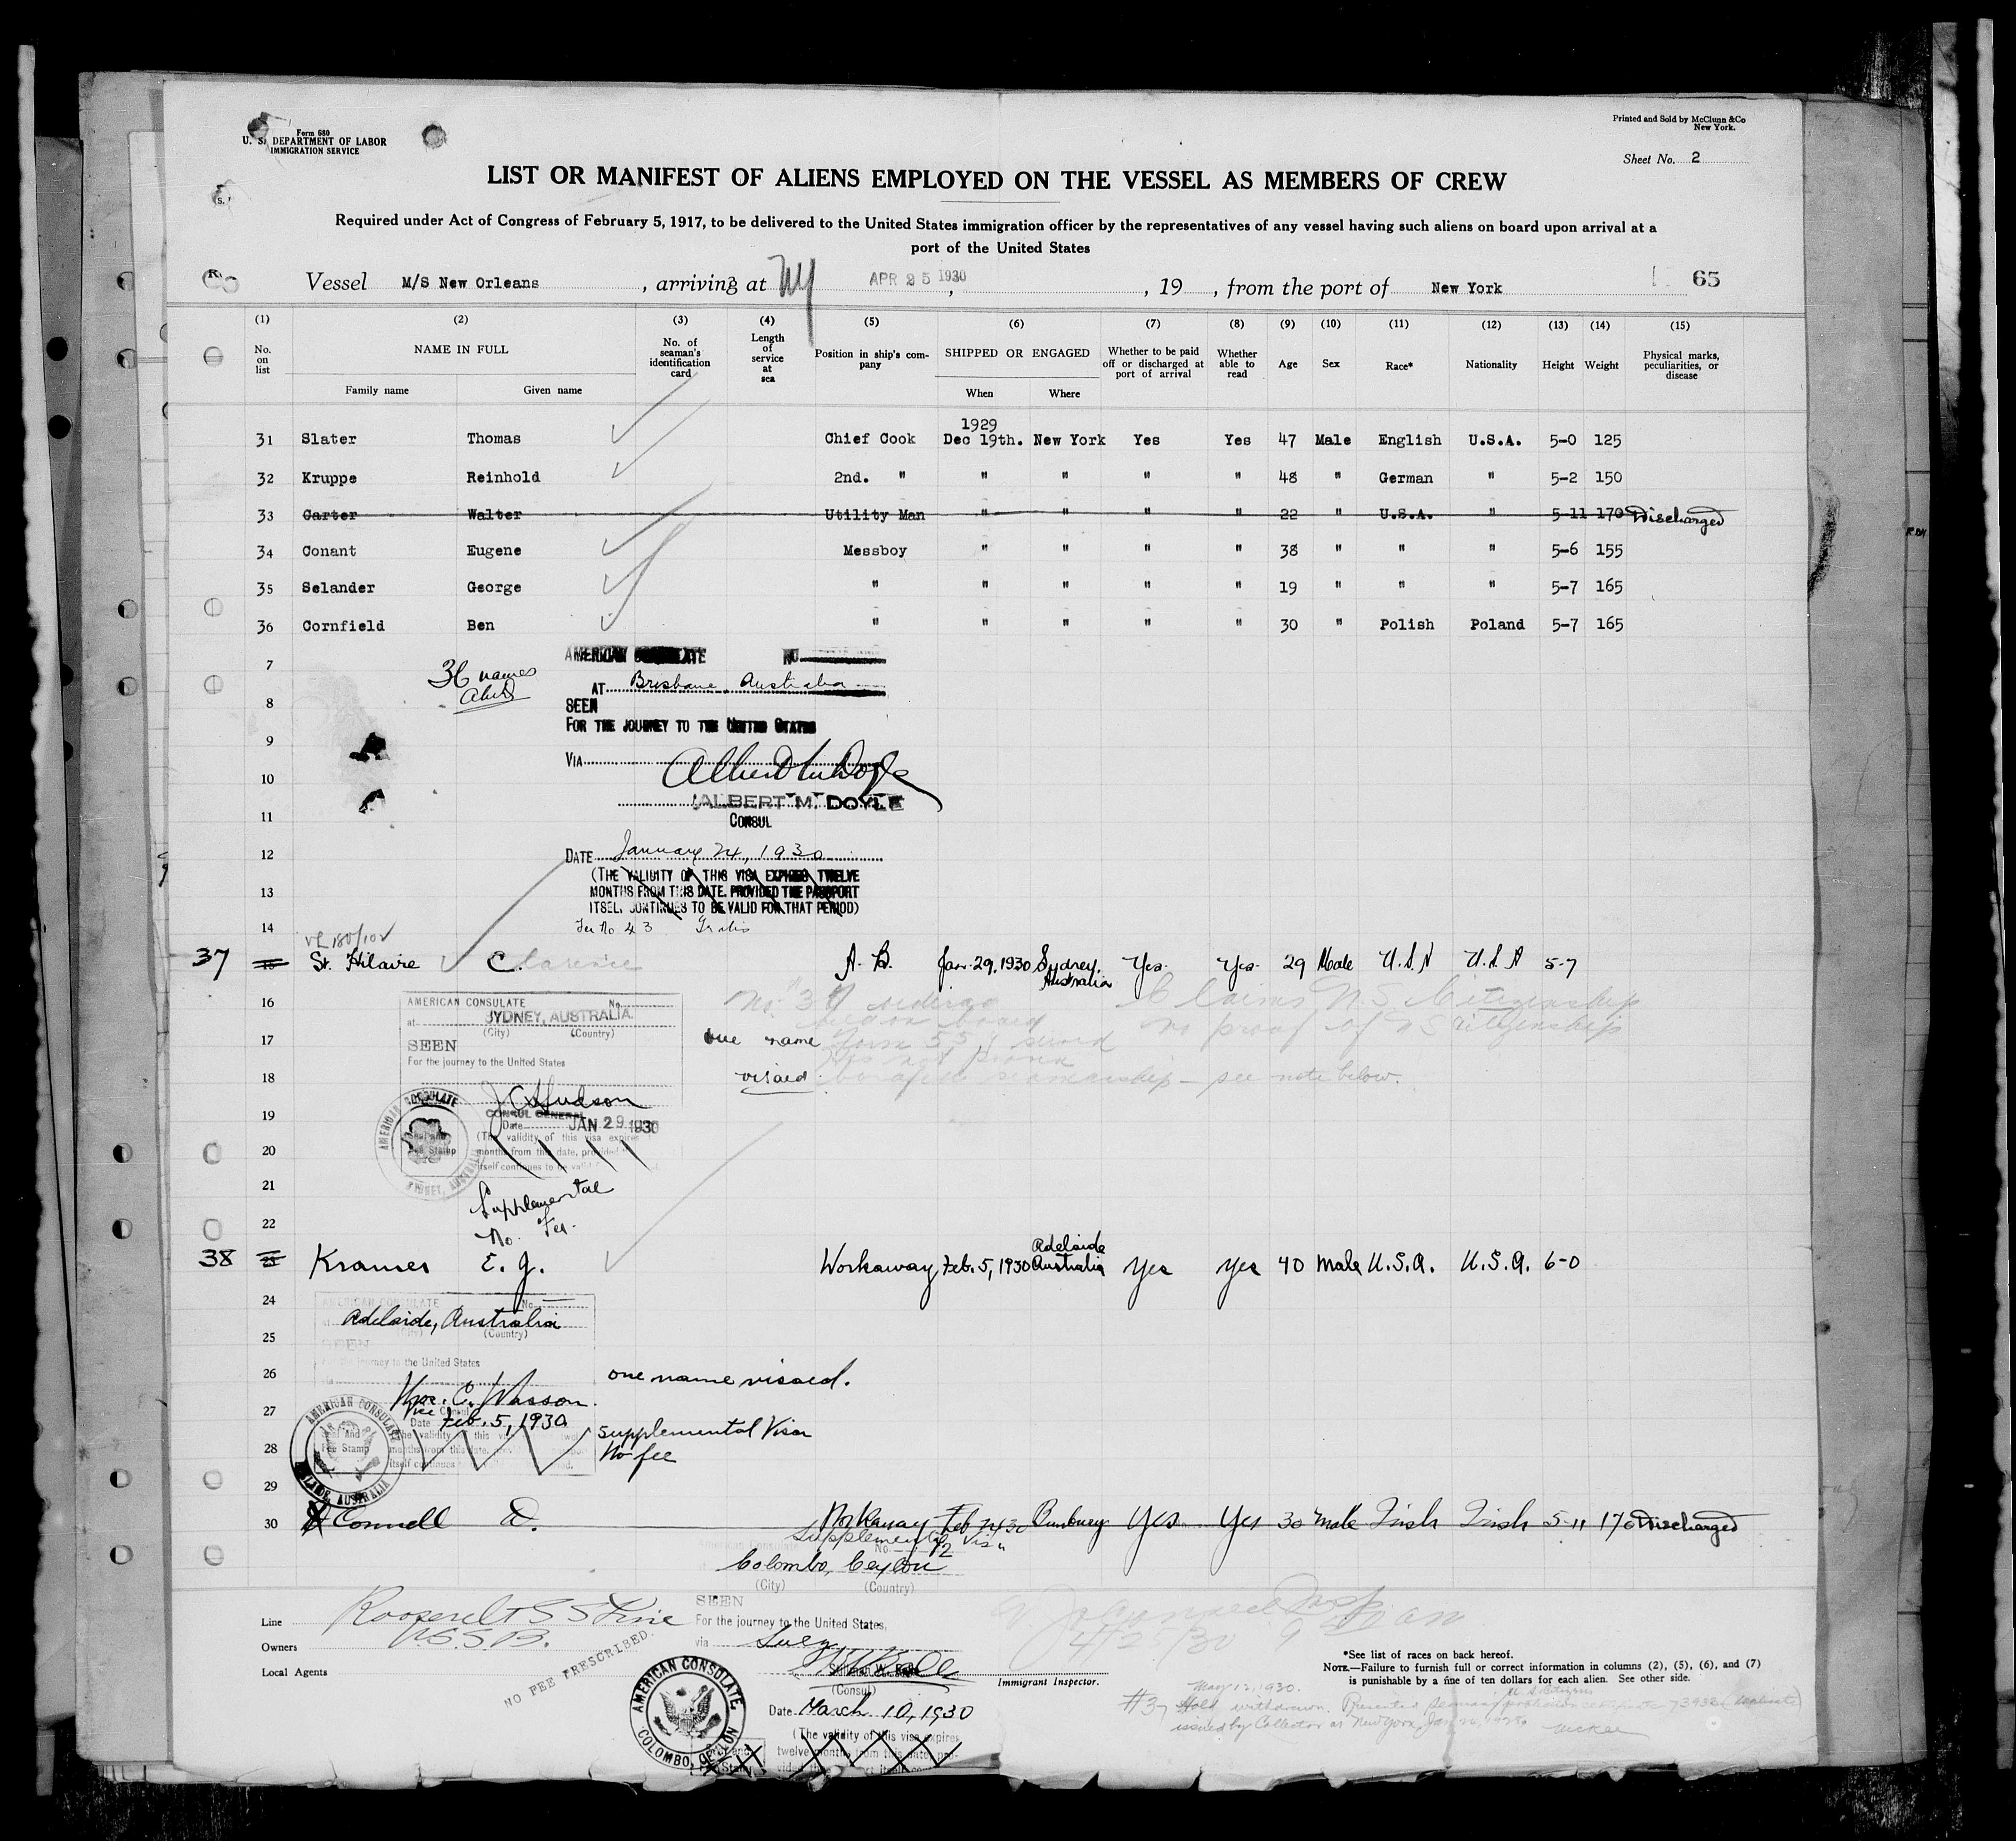 Form 680
U. S. DEPARTMENT OF LABOR
IMMIGRATION SERVICE
Printed and Sold by McClunn & Co
New York.
Sheet No. 2
LIST OR MANIFEST OF ALIENS EMPLOYED ON THE VESSEL AS MEMBERS OF CREW
Required under Act of Congress of February 5, 1917, to be delivered to the United States immigration officer by the representatives of any vessel having such aliens on board upon arrival at a
port of the United States
Vessel M/S New Orleans, arriving at NY APR 25 1930, 19 , from the port of New York 65
(1) (2) (3) (4) (5) (6) (7) (8) (9) (10) (11) (12) (13) (14) (15)
No. on list
NAME IN FULL
Family name
Given name
No. of seaman's identification card
Length of service at sea
Position in ship's company
SHIPPED OR ENGAGED
When
Where
Whether to be paid off or discharged at port of arrival
Whether able to read
Age
Sex
Race*
Nationality
Height
Weight
Physical marks, peculiarities, or disease
1929
31 Slater Thomas Chief Cook Dec 19th. New York Yes Yes 47 Male English U.S.A. 5-0 125
32 Kruppe Reinhold 2nd. " " " " " 48 " German " 5-2 150
33 Carter Walter Utility Man " " " " 22 " U.S.A. " 5-11 170 Discharged
34 Conant Eugene Messboy " " " " 38 " " " 5-6 155
35 Selander George " " " " " 19 " " " 5-7 165
36 Cornfield Ben " " " " " 30 " Polish Poland 5-7 165
7
8
9
10
11
12
13
14
36 names
AMERICAN CONSULATE NO
AT Brisbane, Australia
SEEN
FOR THE JOURNEY TO THE UNITED STATES
VIA
ALBERT M. DOYLE
CONSUL
DATE January 24, 1930
(THE VALIDITY OF THIS VISA EXPIRES TWELVE
MONTHS FROM THIS DATE. PROVIDED THE PASSPORT
ITSELF CONTINUES TO BE VALID FOR THAT PERIOD)
Fee No 43 Gratis
37 St. Hilaire Clarence A. B. Jan. 29, 1930 Sydney, Australia Yes Yes 29 Male U.S.A U.S.A 5-7
16
17
18
19
20
21
22
AMERICAN CONSULATE No.
at SYDNEY, AUSTRALIA
(City) (Country)
SEEN
For the journey to the United States
J. C. Hudson
CONSUL GENERAL
Date JAN 29 1930
(The validity of this visa expires
months from this date, provided
itself continues to be valid
AMERICAN CONSULATE
SYDNEY, AUSTRALIA
one name
visaed
Claims U.S. Citizenship
no proof of US citizenship
seamanship - see note below.
Supplemental
No. Fee.
38 Kramer E. J. Workaway Feb. 5, 1930 Adelaide Australia Yes Yes 40 Male U.S.A. U.S.A. 6-0
24
25
26
27
28
29
AMERICAN CONSULATE No.
Adelaide, Australia
(City) (Country)
SEEN
For the journey to the United States
Thos. C. Wasson.
Vice Consul
Date Feb. 5, 1930
AMERICAN CONSULATE
ADELAIDE, AUSTRALIA
one name visaed.
Supplemental Visa
No fee
30 O'Connell D. Workaway Feb 14 30 Bunbury Yes Yes 30 Male Irish Irish 5-11 170 Discharged
Supplemental Visa
American Consulate No. 12
Colombo, Ceylon
(City) (Country)
SEEN
For the journey to the United States,
via Suez
(Consul)
Date March 10, 1930
(The validity of this visa expires
twelve months from this date
AMERICAN CONSULATE
COLOMBO, CEYLON
Line Roosevelt SS Line
Owners U.S.S.B.
Local Agents
NO FEE PRESCRIBED.
Immigrant Inspector.
4/25/30
*See list of races on back hereof.
NOTE.—Failure to furnish full or correct information in columns (2), (5), (6), and (7)
is punishable by a fine of ten dollars for each alien. See other side.
May 12, 1930.
#37 Hold withdrawn. Presented Seaman's protection certificate
issued by Collector at New York, Jan